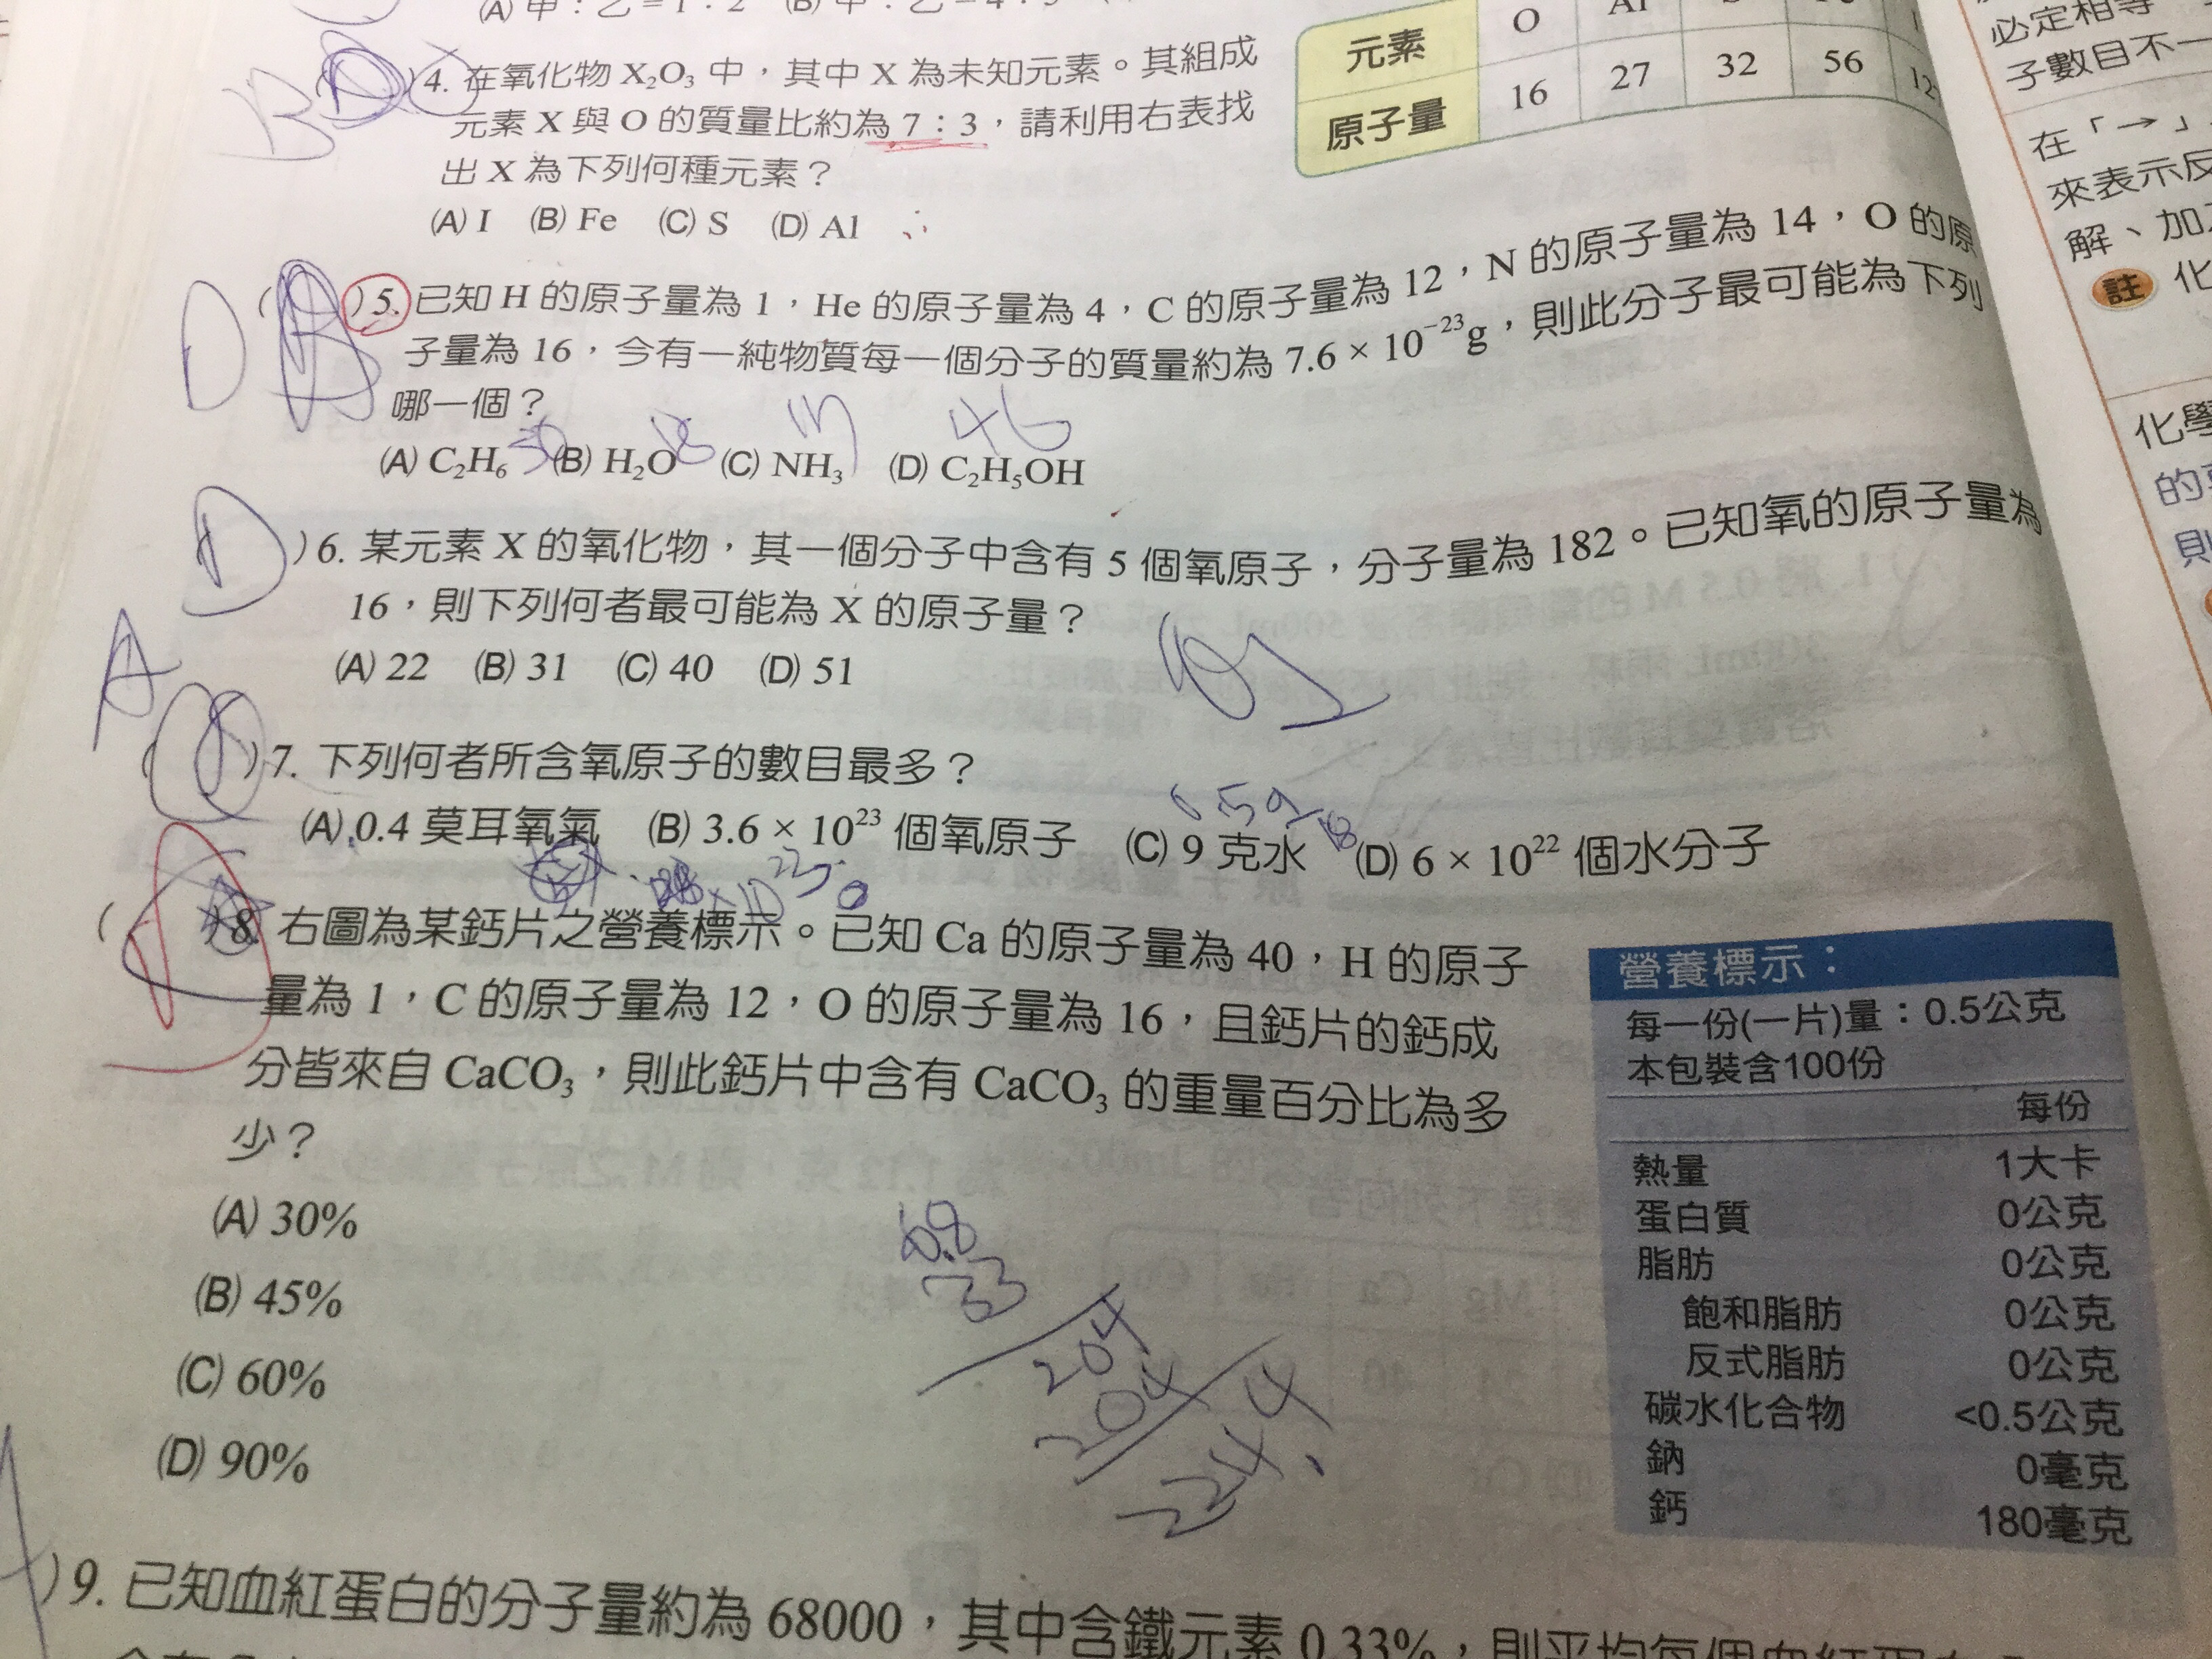 (A) 甲：乙＝1：2 (B) 甲：乙＝4：3
元素 O Al
原子量 16 27 32 56
B
)4. 在氧化物 X₂O₃ 中，其中 X 為未知元素。其組成
元素 X 與 O 的質量比約為 7：3，請利用右表找
出 X 為下列何種元素？
(A) I (B) Fe (C) S (D) Al
D
( )5. 已知 H 的原子量為 1，He 的原子量為 4，C 的原子量為 12，N 的原子量為 14，O 的原
子量為 16，今有一純物質每一個分子的質量約為 7.6 × 10⁻²³g，則此分子最可能為下列
哪一個？
30 18 17 46
(A) C₂H₆ (B) H₂O (C) NH₃ (D) C₂H₅OH
D
)6. 某元素 X 的氧化物，其一個分子中含有 5 個氧原子，分子量為 182。已知氧的原子量為
16，則下列何者最可能為 X 的原子量？
(A) 22 (B) 31 (C) 40 (D) 51
A
( )7. 下列何者所含氧原子的數目最多？
(A) 0.4 莫耳氧氣 (B) 3.6 × 10²³ 個氧原子 (C) 9 克水 (D) 6 × 10²² 個水分子
( )8. 右圖為某鈣片之營養標示。已知 Ca 的原子量為 40，H 的原子
量為 1，C 的原子量為 12，O 的原子量為 16，且鈣片的鈣成
分皆來自 CaCO₃，則此鈣片中含有 CaCO₃ 的重量百分比為多
少？
(A) 30%
(B) 45%
(C) 60%
(D) 90%
68
33
204
204
2244
營養標示：
每一份(一片)量：0.5公克
本包裝含100份
每份
熱量 1大卡
蛋白質 0公克
脂肪 0公克
飽和脂肪 0公克
反式脂肪 0公克
碳水化合物 <0.5公克
鈉 0毫克
鈣 180毫克
)9. 已知血紅蛋白的分子量約為 68000，其中含鐵元素 0.33%，則平均每個血紅蛋白
必定相等
子數目不一
在「→」
來表示反
解、加
註 化
化學
的
則